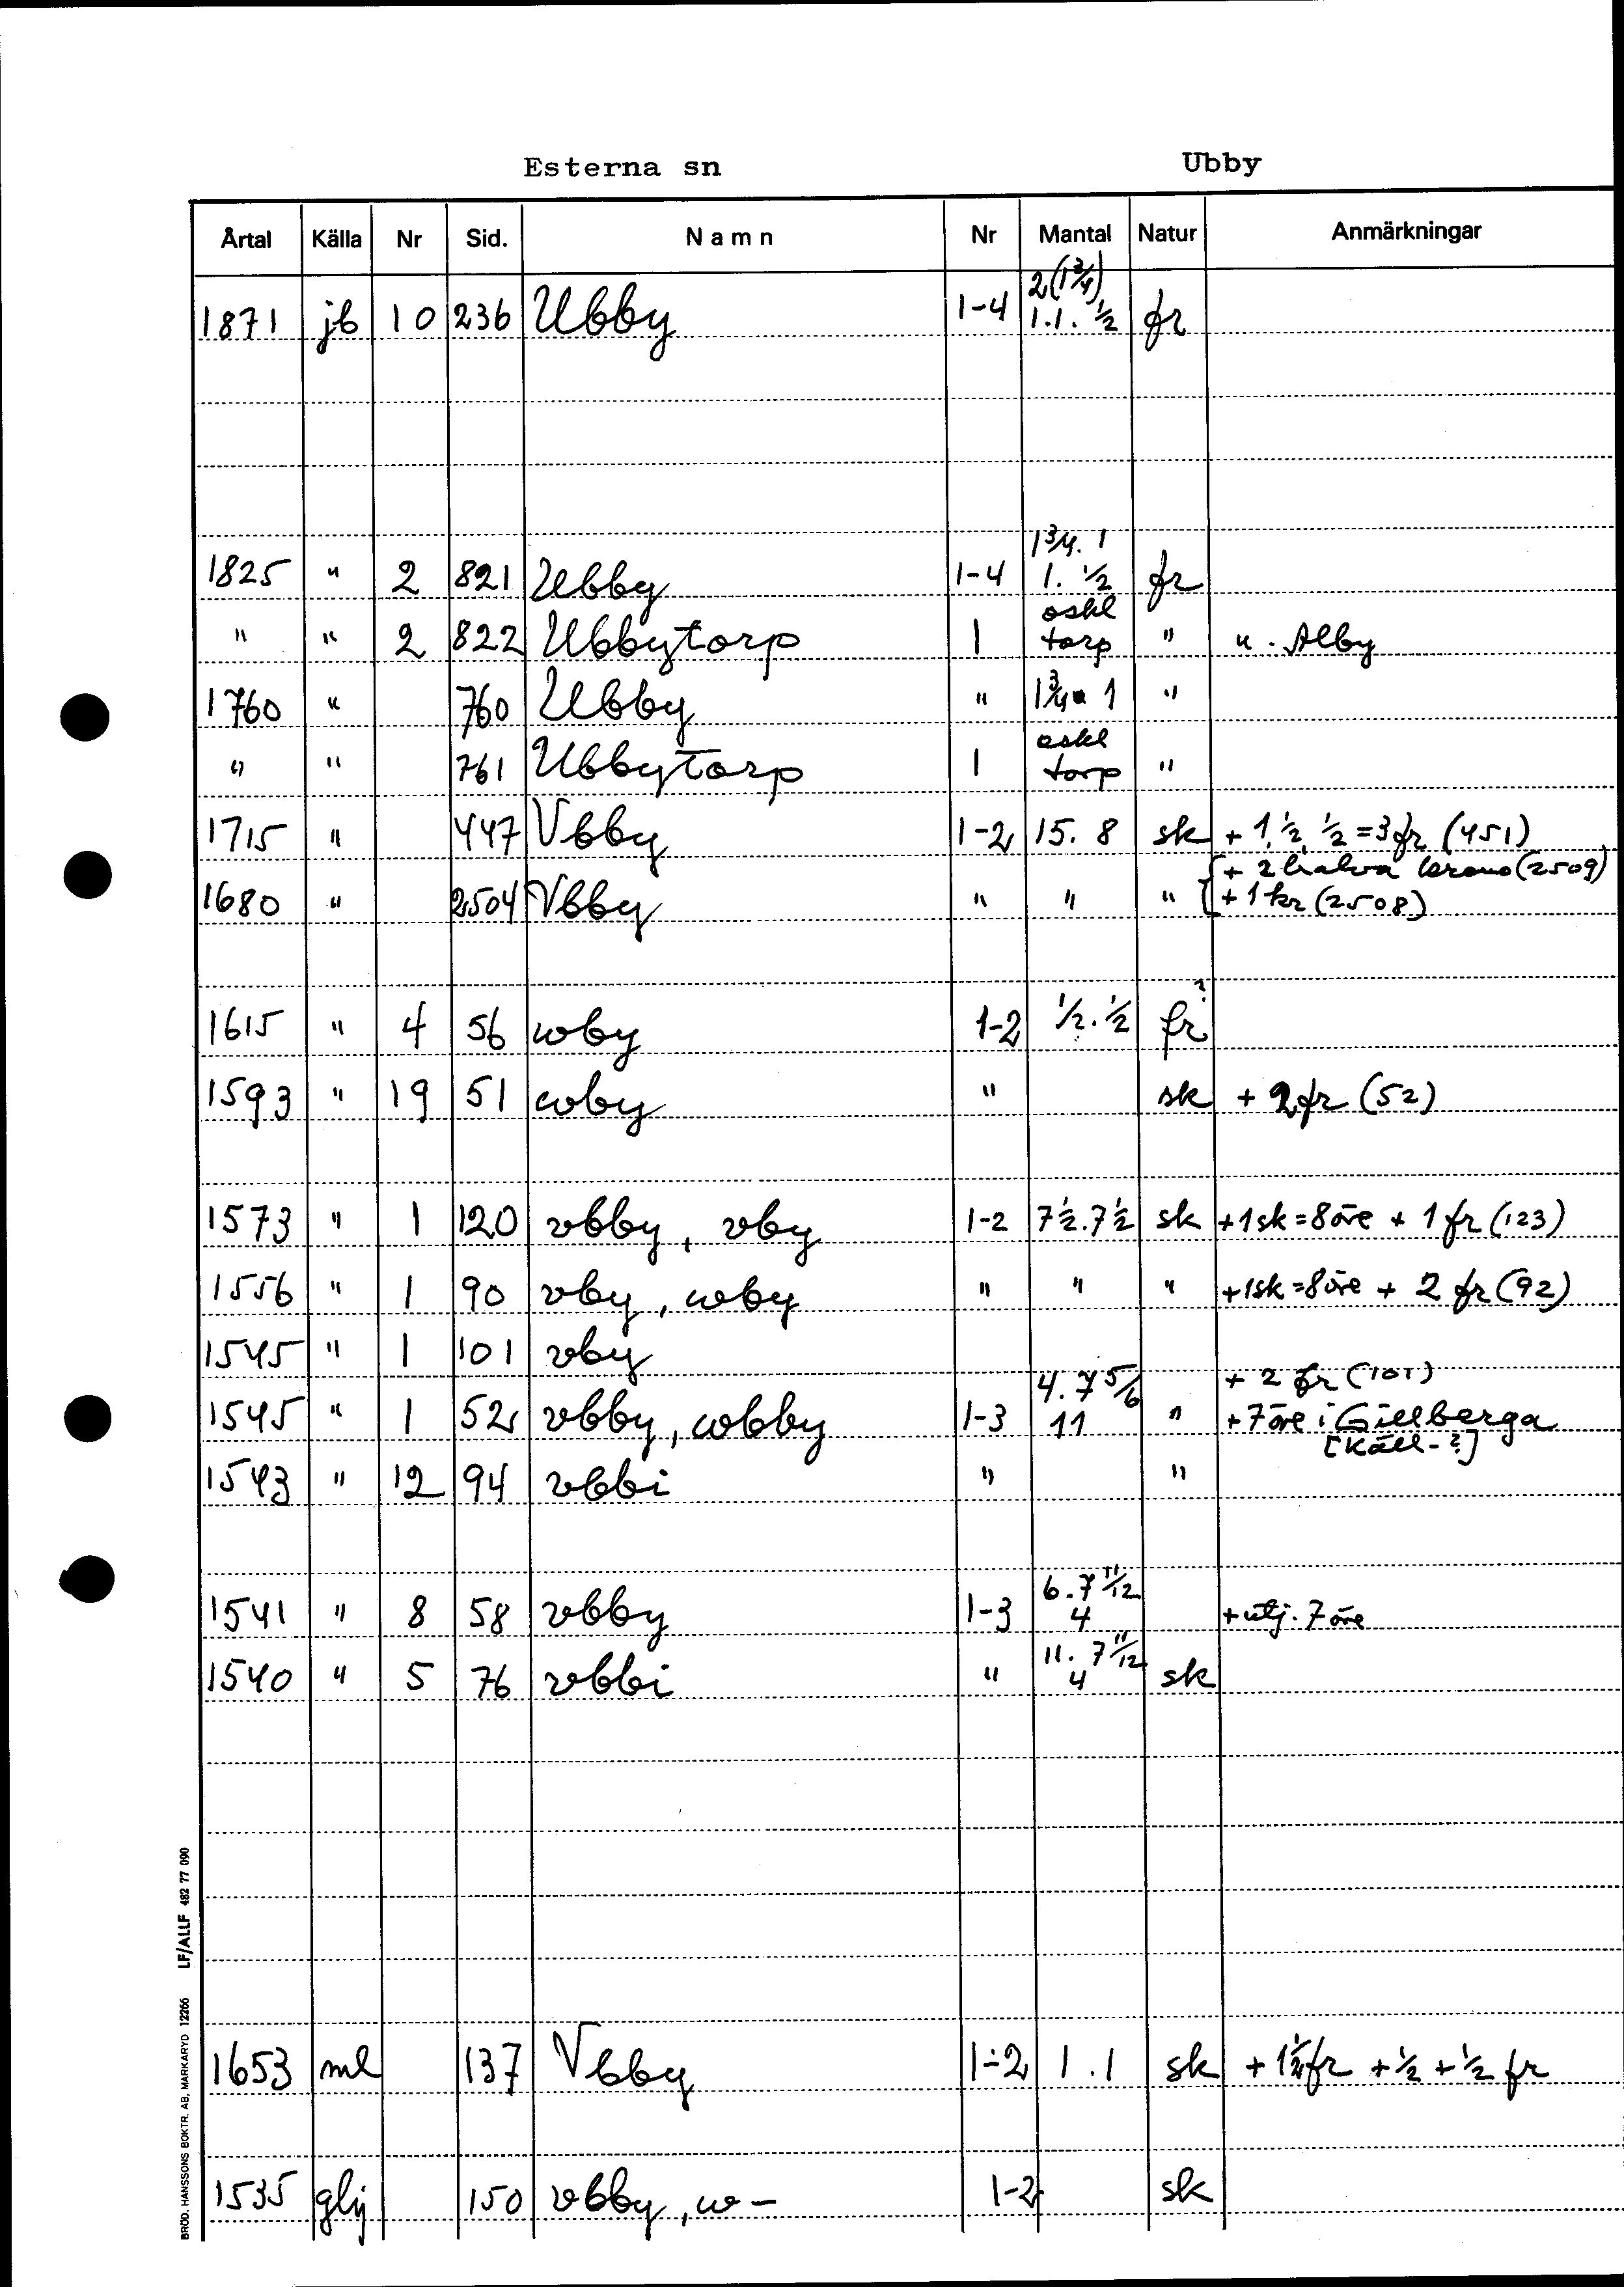 Esterna sn Ubby
Årtal Källa Nr Sid. Namn Nr Mantal Natur Anmärkningar
2 (1 3/4)
1871 jb 10 236 Ubby 1-4 1.1. 1/2 fr
1 3/4. 1
1825 " 2 821 Ubby 1-4 1. 1/2 fr
oskl
" " 2 822 Ubbytorp 1 torp " u. Alby
1760 " 760 Ubby " 1 3/4 1 "
oskl
" " 761 Ubbytorp 1 torp "
1715 " 447 Vbby 1-2 15. 8 sk + 1, 1/2, 1/2 = 3 fr (451)
+ 2 halva krono (2509)
1680 " 2504 Vbby " " " + 1 kr (2508)
1615 " 4 56 wby 1-2 1/2. 1/2 fr ?
1593 " 19 51 wby " sk + 2 fr (52)
1573 " 1 120 vbby, vby 1-2 7 1/2. 7 1/2 sk + 1 sk = 8 öre + 1 fr (123)
1556 " 1 90 vby, wby " " " + 1 sk = 8 öre + 2 fr (92)
1545 " 1 101 vby
4. 7 5/6 + 2 fr (101)
1545 " 1 52 vbby, wbby 1-3 11 " + 7 öre i Gillberga
[Käll-?]
1543 " 12 94 vbbi " "
6. 7 11/12
1541 " 8 58 vbby 1-3 4 + utj. 7 öre
11. 7 11/12
1540 " 5 76 vbbi " 4 sk
1653 ml 137 Vbby 1-2 1.1 sk + 1 1/2 fr + 1/2 + 1/2 fr
1535 glij 150 vbby, w- 1-2 sk
BRÖD. HANSSONS BOKTR. AB, MARKARYD 12266 LF/ALLF 482 77 090